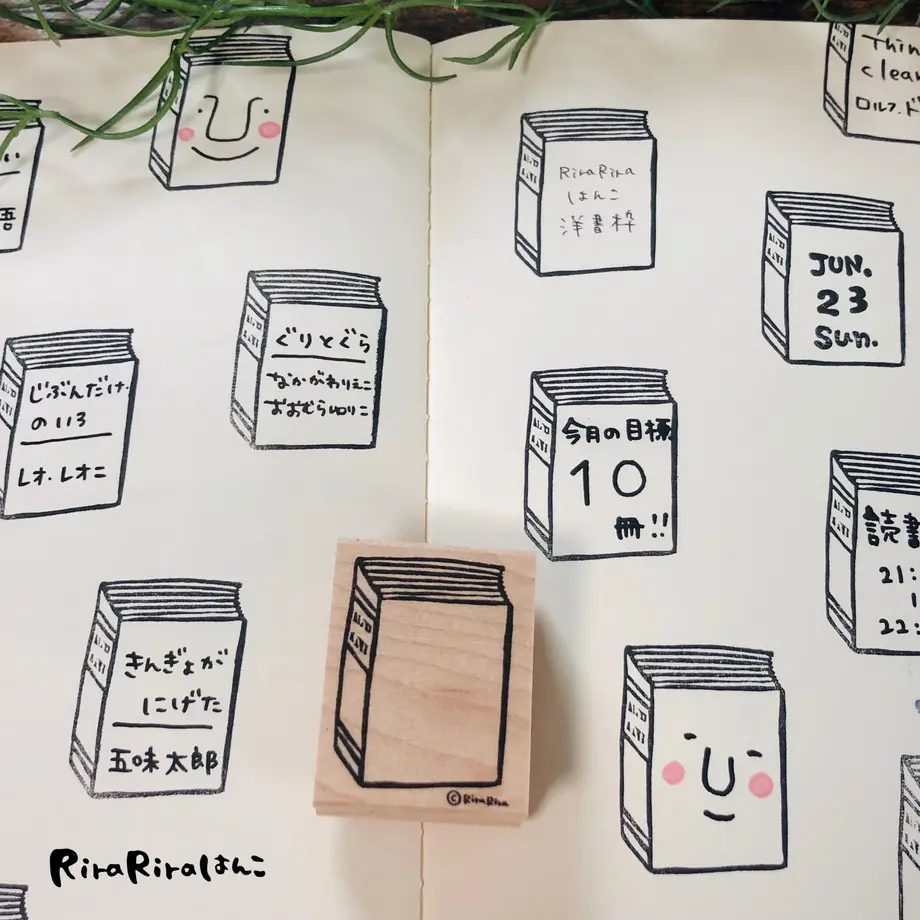 い
語
じぶんだけ
のいろ
レオ.レオニ
ぐりとぐら
なかがわりえこ
おおむらゆりこ
きんぎょが
にげた
五味太郎
RiraRiraはんこ
©RiraRira
RiraRira
はんこ
洋書枠
今月の目標
10
冊!!
Thin
clear
ロルフ.ド
JUN.
23
Sun.
読書
21:
1
22: